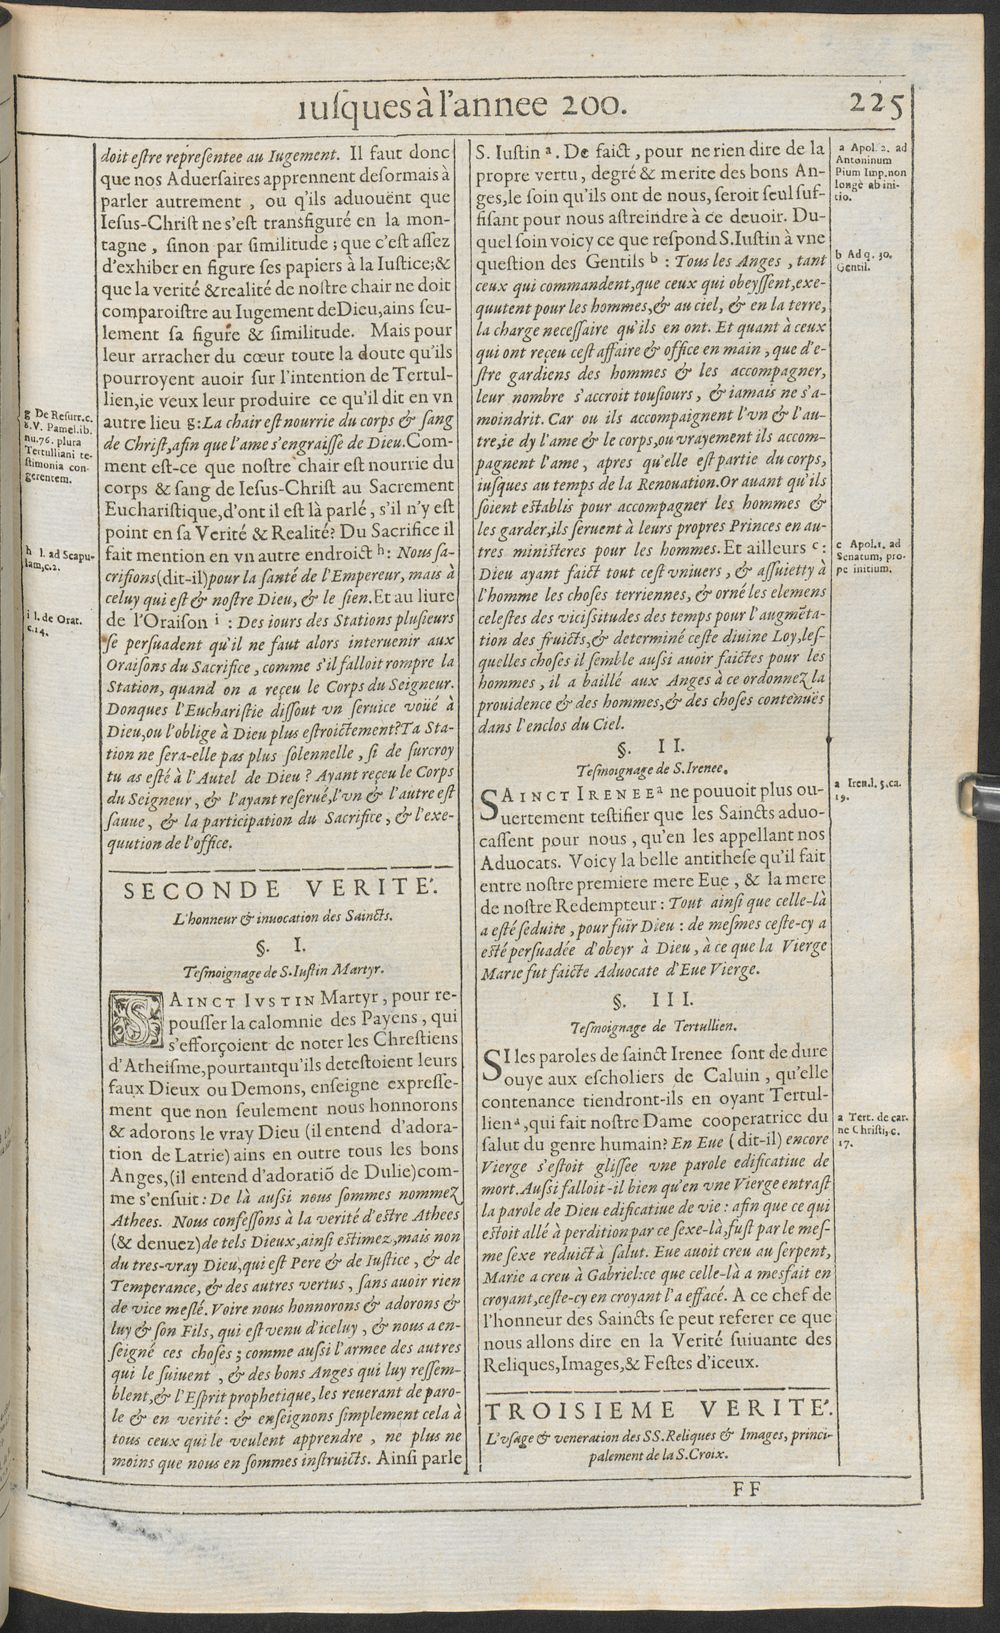 iusques à l'annee 200. 225
doit estre representee au Iugement. Il faut donc
que nos Aduersaires apprennent desormais à
parler autrement , ou q'ils aduouënt que
Iesus-Christ ne s'est transfiguré en la mon-
tagne , sinon par similitude ; que c'est assez
d'exhiber en figure ses papiers à la Iustice;&
que la verité &realité de nostre chair ne doit
comparoistre au Iugement deDieu,ains seu-
lement sa figure & similitude. Mais pour
leur arracher du cœur toute la doute qu'ils
pourroyent auoir sur l'intention de Tertul-
lien,ie veux leur produire ce qu'il dit en vn
autre lieu g:La chair est nourrie du corps & sang
de Christ,afin que l'ame s'engraisse de Dieu.Com-
ment est-ce que nostre chair est nourrie du
corps & sang de Iesus-Christ au Sacrement
Eucharistique,d'ont il est là parlé , s'il n'y est
point en sa Verité & Realité? Du Sacrifice il
fait mention en vn autre endroict h: Nous sa-
crifions(dit-il)pour la santé de l'Empereur, mais à
celuy qui est & nostre Dieu, & le sien.Et au liure
de l'Oraison i : Des iours des Stations plusieurs
se persuadent qu'il ne faut alors interuenir aux
Oraisons du Sacrifice , comme s'il falloit rompre la
Station, quand on a reçeu le Corps du Seigneur.
Donques l'Eucharistie dissout vn seruice voüé à
Dieu,ou l'oblige à Dieu plus estroictement?Ta Sta-
tion ne sera-elle pas plus solennelle , si de surcroy
tu as esté à l'Autel de Dieu ? Ayant reçeu le Corps
du Seigneur , & l'ayant reserué,l'vn & l'autre est
sauue , & la participation du Sacrifice , & l'exe-
quution de l'office.
g De Resurr.c.
8.V. Pamel.ib.
nu.76. plura
Tertulliani te-
stimonia con-
gerentem.
h l. ad Scapu-
lam,c.2.
i l. de Orat.
c.14.
SECONDE VERITE'.
L'honneur & inuocation des Saincts.
§. I.
Tesmoignage de S.Iustin Martyr.
SAINCT IVSTIN Martyr , pour re-
pousser la calomnie des Payens , qui
s'efforçoient de noter les Chrestiens
d'Atheisme,pourtantqu'ils detestoient leurs
faux Dieux ou Demons, enseigne expresse-
ment que non seulement nous honnorons
& adorons le vray Dieu (il entend d'adora-
tion de Latrie) ains en outre tous les bons
Anges,(il entend d'adoratiõ de Dulie)com-
me s'ensuit : De là aussi nous sommes nommez
Athees. Nous confessons à la verité d'estre Athees
(& denuez)de tels Dieux,ainsi estimez,mais non
du tres-vray Dieu,qui est Pere & de Iustice , & de
Temperance, & des autres vertus , sans auoir rien
de vice meslé. Voire nous honnorons & adorons &
luy & son Fils, qui est venu d'iceluy , & nous a en-
seigné ces choses ; comme aussi l'armee des autres
qui le suiuent , & des bons Anges qui luy ressem-
blent,& l'Esprit prophetique, les reuerant de paro-
le & en verité : & enseignons simplement cela à
tous ceux qui le veulent apprendre , ne plus ne
moins que nous en sommes instruicts. Ainsi parle
S. Iustin a. De faict , pour ne rien dire de la
propre vertu , degré & merite des bons An-
ges,le soin qu'ils ont de nous, seroit seul suf-
fisant pour nous astreindre à ce deuoir. Du-
quel soin voicy ce que respond S.Iustin à vne
question des Gentils b : Tous les Anges , tant
ceux qui commandent,que ceux qui obeyssent,exe-
quutent pour les hommes,& au ciel, & en la terre,
la charge necessaire qu'ils en ont. Et quant à ceux
qui ont reçeu cest affaire & office en main , que d'e-
stre gardiens des hommes & les accompagner,
leur nombre s'accroit tousiours , & iamais ne s'a-
moindrit. Car ou ils accompaignent l'vn & l'au-
tre,ie dy l'ame & le corps,ou vrayement ils accom-
pagnent l'ame , apres qu'elle est partie du corps,
iusques au temps de la Renouation.Or auant qu'ils
soient establis pour accompagner les hommes &
les garder,ils seruent à leurs propres Princes en au-
tres ministeres pour les hommes.Et ailleurs c :
Dieu ayant faict tout cest vniuers , & assuietty à
l'homme les choses terriennes, & orné les elemens
celestes des vicissitudes des temps pour l'augmẽta-
tion des fruicts,& determiné ceste diuine Loy,les-
quelles choses il semble aussi auoir faictes pour les
hommes , il a baillé aux Anges à ce ordonnez la
prouidence & des hommes,& des choses contenuës
dans l'enclos du Ciel.
a Apol. 2. ad
Antoninum
Pium Imp.non
longè ab ini-
tio.
b Ad q. 30.
Gentil.
c Apol.1. ad
Senatum, pro-
pe initium.
§. II.
Tesmoignage de S.Irenee.
SAINCT IRENEE a ne pouuoit plus ou-
uertement testifier que les Saincts aduo-
cassent pour nous , qu'en les appellant nos
Aduocats. Voicy la belle antithese qu'il fait
entre nostre premiere mere Eue , & la mere
de nostre Redempteur : Tout ainsi que celle-là
a esté seduite , pour fuïr Dieu : de mesmes ceste-cy a
esté persuadée d'obeyr à Dieu , à ce que la Vierge
Marie fut faicte Aduocate d'Eue Vierge.
a Iren.l. 5.ca.
19.
§. III.
Tesmoignage de Tertullien.
SI les paroles de sainct Irenee sont de dure
ouye aux escholiers de Caluin , qu'elle
contenance tiendront-ils en oyant Tertul-
lien a ,qui fait nostre Dame cooperatrice du
salut du genre humain? En Eue ( dit-il) encore
Vierge s'estoit glissee vne parole edificatiue de
mort.Aussi falloit-il bien qu'en vne Vierge entrast
la parole de Dieu edificatiue de vie : afin que ce qui
estoit allé à perdition par ce sexe-là,fust par le mes-
me sexe reduict à salut. Eue auoit creu au serpent,
Marie a creu à Gabriel:ce que celle-là a mesfait en
croyant,ceste-cy en croyant l'a effacé. A ce chef de
l'honneur des Saincts se peut referer ce que
nous allons dire en la Verité suiuante des
Reliques,Images,& Festes d'iceux.
a Tert. de car.
ne Christi, c.
17.
TROISIEME VERITE'.
L'vsage & veneration des SS.Reliques & Images, princi-
palement de la S.Croix.
FF